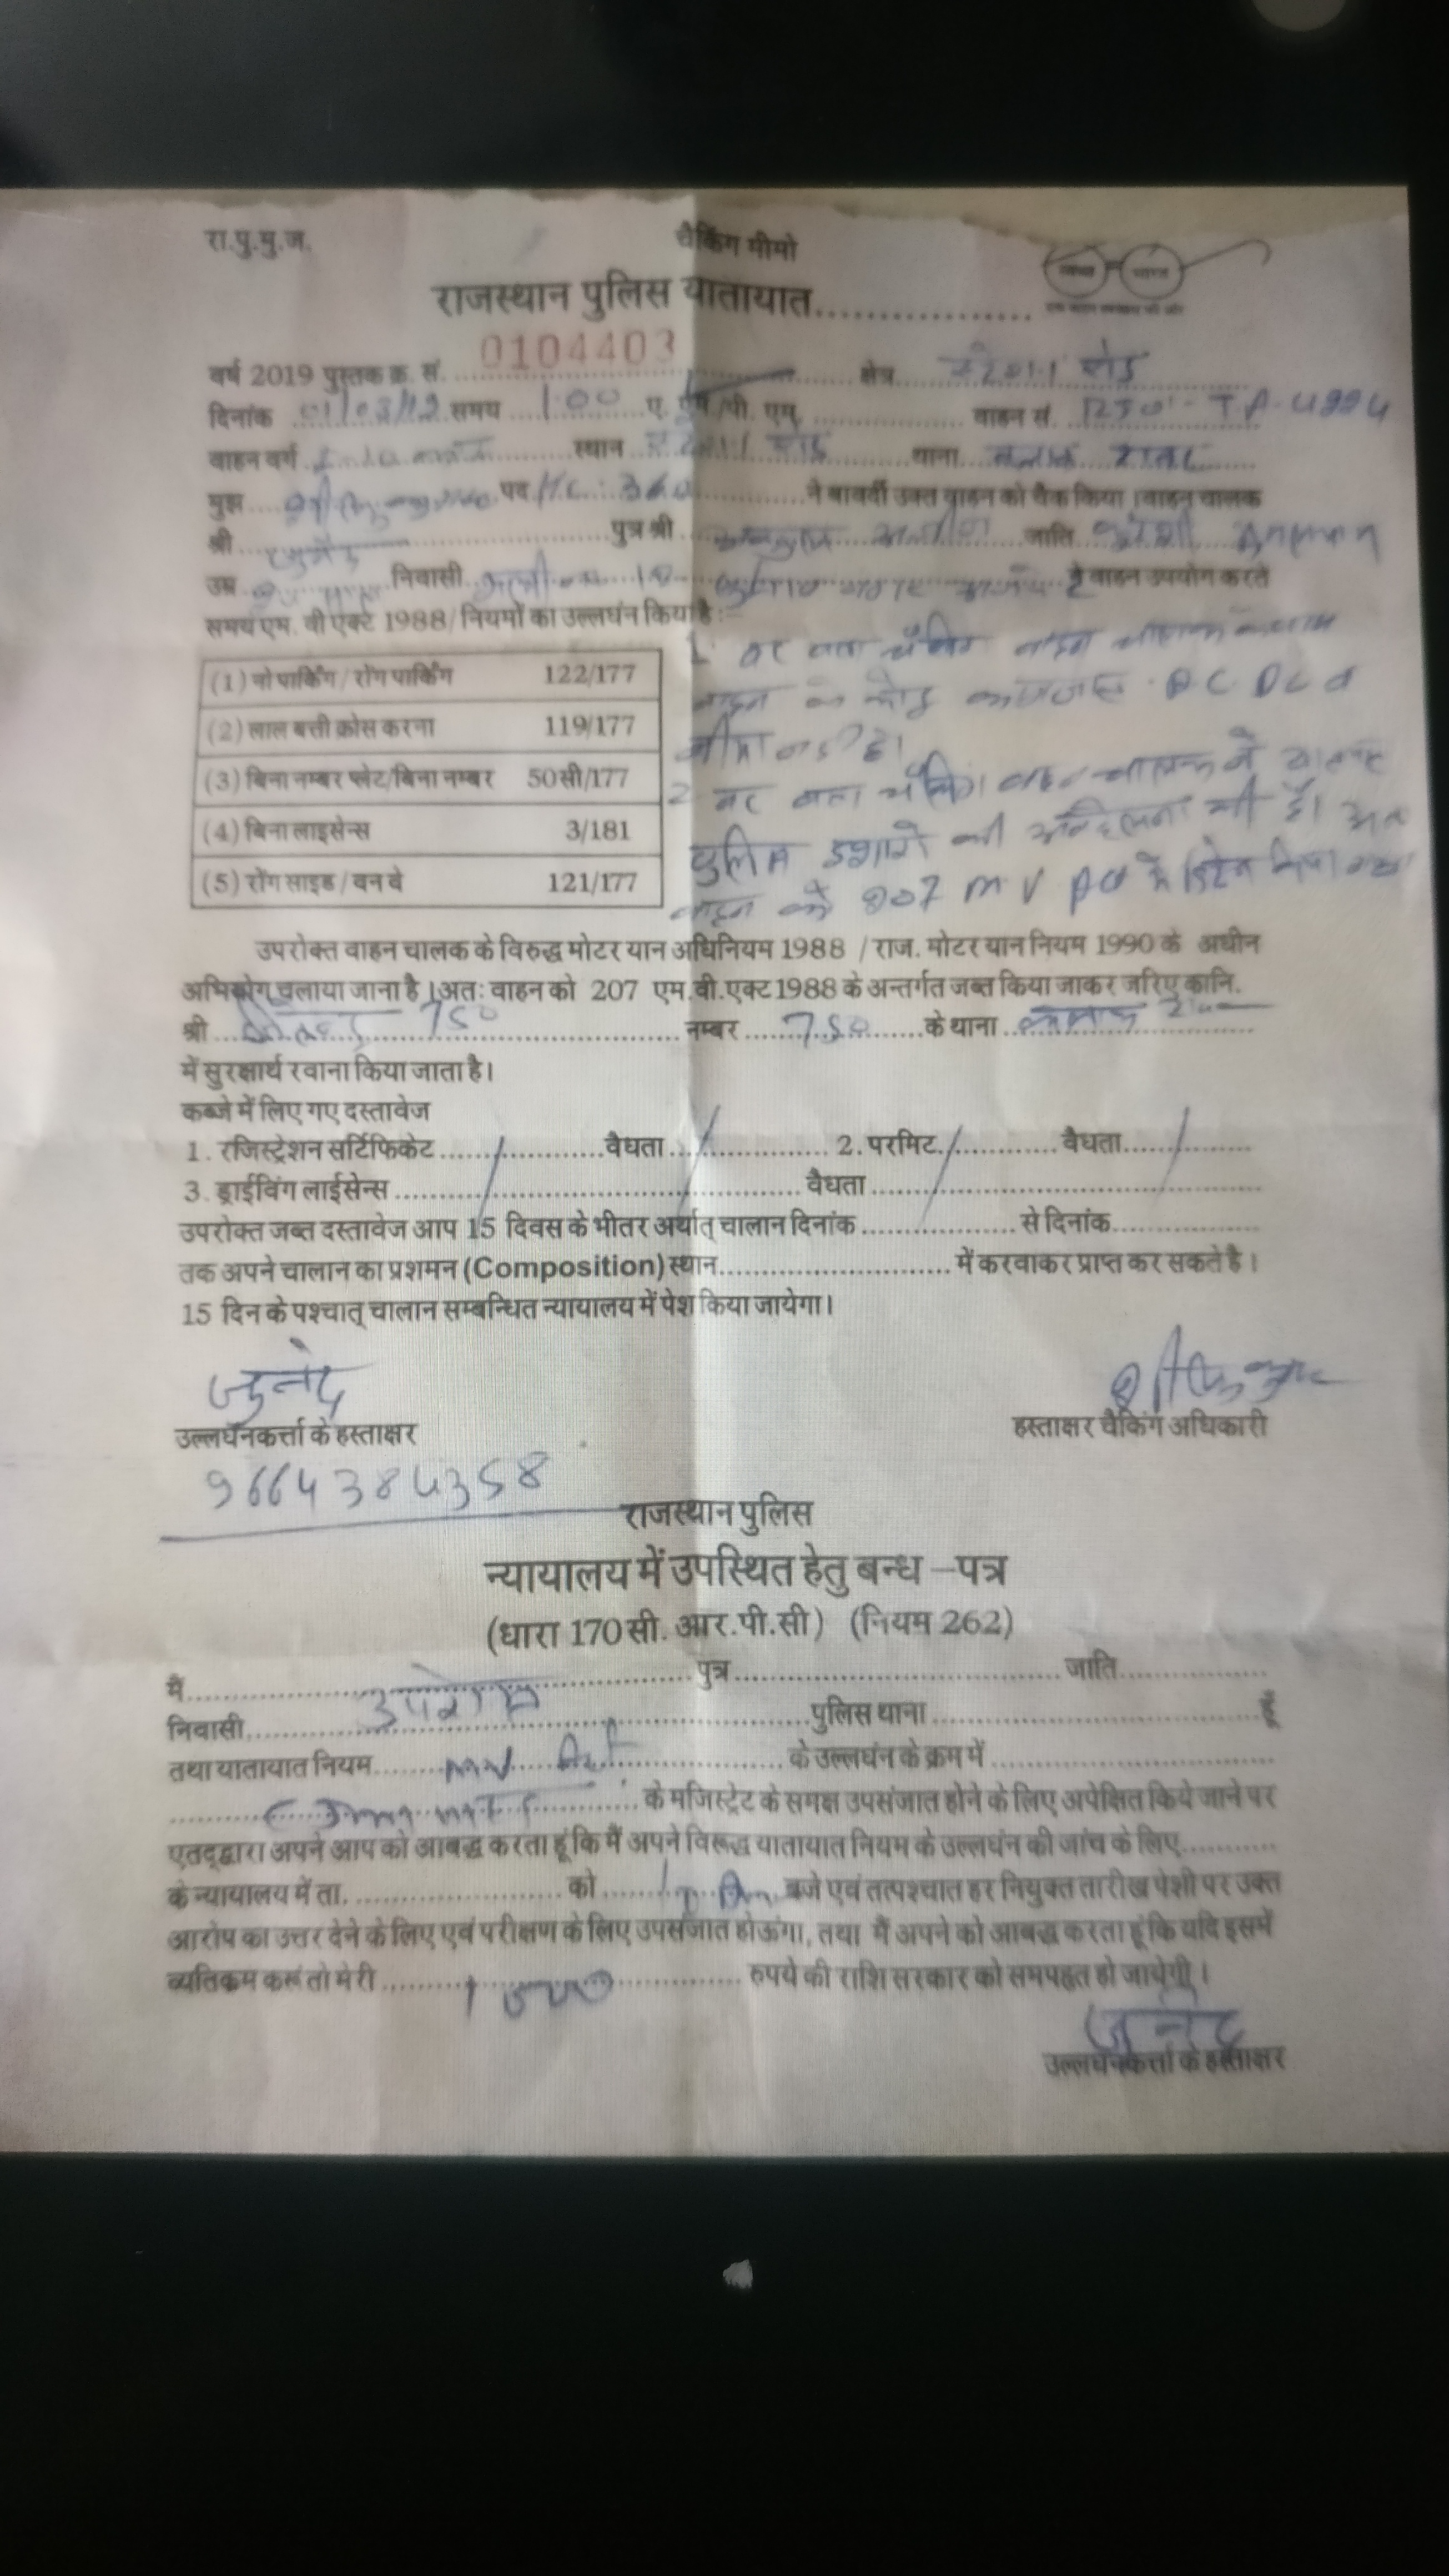 रा.पु.मु.ज. चैकिंग मीमो
राजस्थान पुलिस यातायात.................
0104403
वर्ष 2019 पुस्तक क्र. सं. क्षेत्र स्टेशन रोड
दिनांक 01/03/19 समय 1:00 ए. एम/पी. एम. वाहन सं.
वाहन वर्ग स्थान स्टेशन रोड थाना
मुझ पद H.C. 360 ने बावर्दी उक्त वाहन को चैक किया। वाहन चालक
श्री जुनेद पुत्र श्री जाति
उम्र निवासी ने वाहन उपयोग करते
समय एम. वी एक्ट 1988/ नियमों का उल्लघंन किया है :-
(1) नो पार्किंग/ रोंग पार्किंग 122/177
(2) लाल बत्ती क्रोस करना 119/177
(3) बिना नम्बर प्लेट/बिना नम्बर 50सी/177
(4) बिना लाइसेन्स 3/181
(5) रोंग साइड/ वन वे 121/177
1. वर वक्त चैकिंग वाहन चालक के पास
वाहन के कोई कागजात RC DL व
बीमा नहीं है।
2. वर वक्त चैकिंग वाहन चालक ने
पुलिस इशारे की अवहेलना की है। अतः
वाहन को 207 MV Act में डिटेन किया गया
उपरोक्त वाहन चालक के विरुद्ध मोटर यान अधिनियम 1988 / राज. मोटर यान नियम 1990 के अधीन
अभियोग चलाया जाना है। अतः वाहन को 207 एम.वी.एक्ट 1988 के अन्तर्गत जब्त किया जाकर जरिए कानि.
श्री 750 नम्बर 750 के थाना
में सुरक्षार्थ रवाना किया जाता है।
कब्जे में लिए गए दस्तावेज
1. रजिस्ट्रेशन सर्टिफिकेट वैधता 2. परमिट वैधता
3. ड्राईविंग लाईसेन्स वैधता
उपरोक्त जब्त दस्तावेज आप 15 दिवस के भीतर अर्थात् चालान दिनांक से दिनांक
तक अपने चालान का प्रशमन (Composition) स्थान में करवाकर प्राप्त कर सकते है।
15 दिन के पश्चात् चालान सम्बन्धित न्यायालय में पेश किया जायेगा।
जुनेद
उल्लघंनकर्त्ता के हस्ताक्षर हस्ताक्षर चैकिंग अधिकारी
9664384358
राजस्थान पुलिस
न्यायालय में उपस्थित हेतु बन्ध –पत्र
(धारा 170 सी. आर.पी.सी) (नियम 262)
मैं उपरोक्त पुत्र जाति
निवासी पुलिस थाना हूँ
तथा यातायात नियम MV Act के उल्लघंन के क्रम में
के मजिस्ट्रेट के समक्ष उपसंजात होने के लिए अपेक्षित किये जाने पर
एतद्द्वारा अपने आप को आबद्ध करता हूं कि मैं अपने विरूद्ध यातायात नियम के उल्लघंन की जांच के लिए
के न्यायालय में ता. को बजे एवं तत्पश्चात हर नियुक्त तारीख पेशी पर उक्त
आरोप का उत्तर देने के लिए एवं परीक्षण के लिए उपसंजात होऊंगा, तथा मैं अपने को आबद्ध करता हूं कि यदि इसमें
व्यतिक्रम करूं तो मेरी रुपये की राशि सरकार को समपहृत हो जायेगी।
जुनेद
उल्लघंनकर्त्ता के हस्ताक्षर